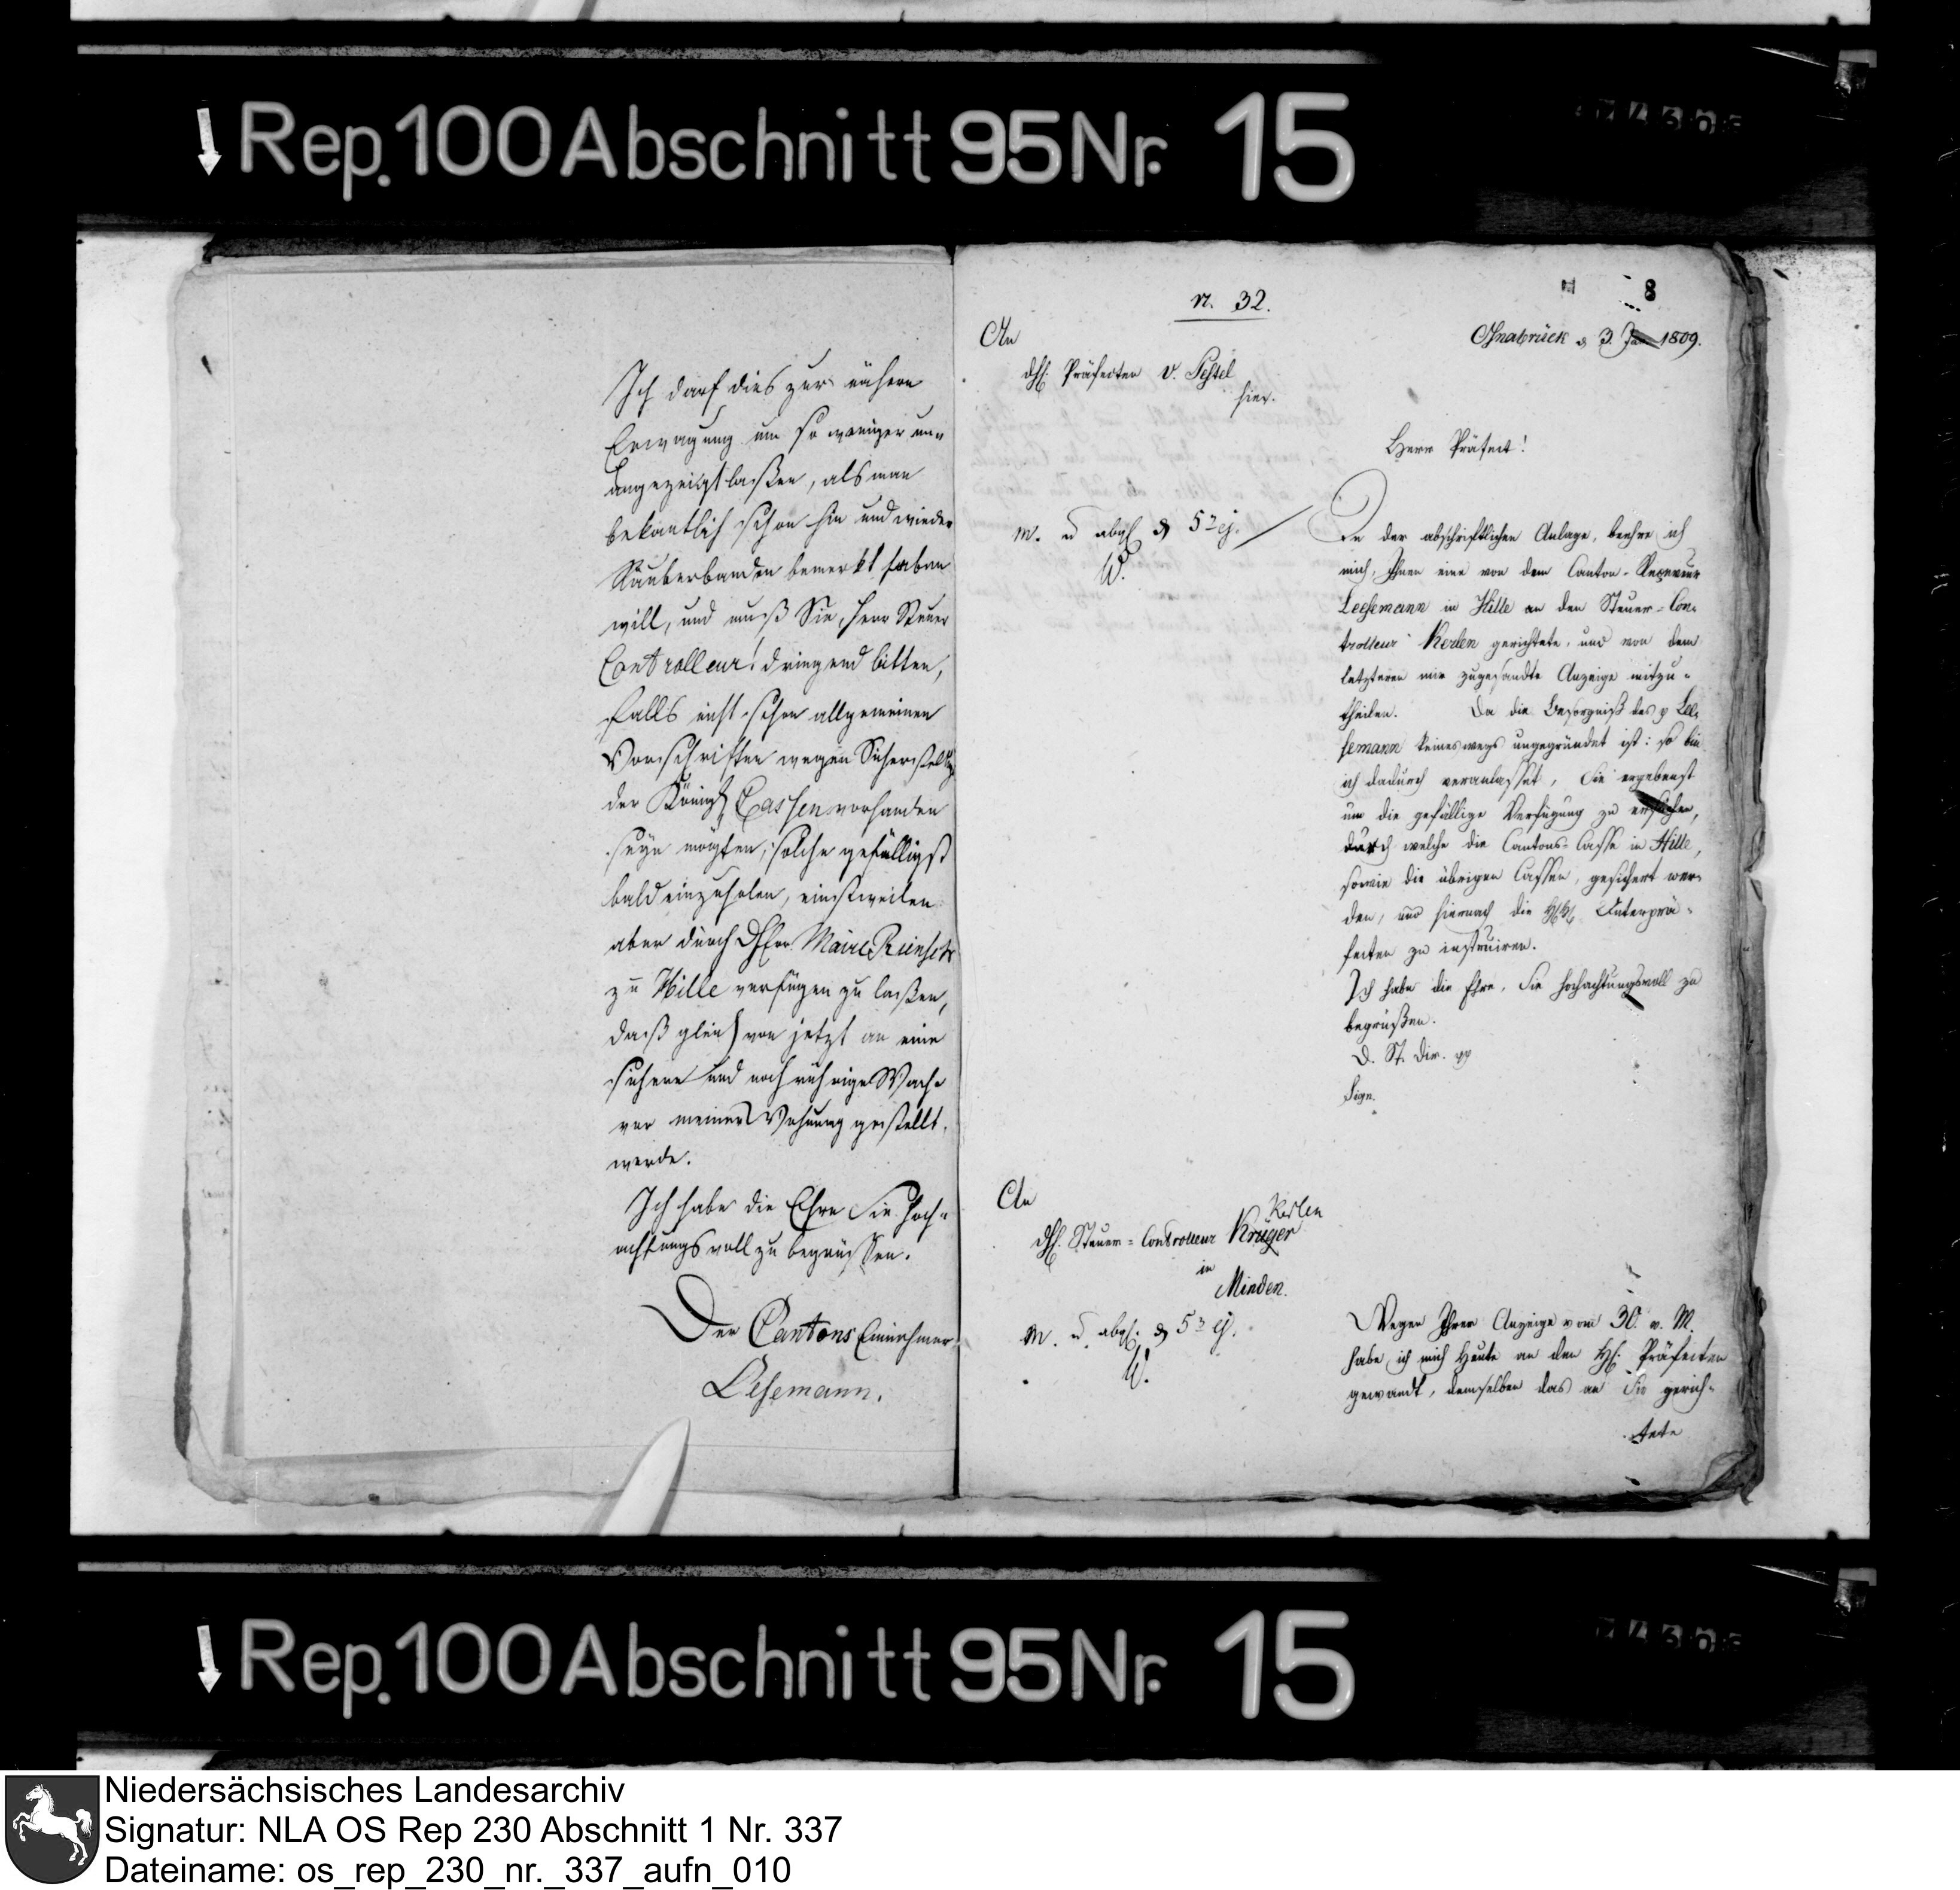 Rep. 100 Abschnitt 95 Nr. 15
Ich darf dies zur nähern
Erwagung um so weniger un=
angezeigt laßen, als man
bekantlich schon hin und wieder
Räuberbanden bemerkt haben
will, und muß Sie, Herr Steuer
Controlleur! dringend bitten,
falls nicht schon allgemeinen
Vorschriften wegen Sicherstellung
der Königl. Cassen vorhanden
seyn mögten, solche gefälligst
bald einzuholen, einstweilen
aber durch Maire
zu Hille verfügen zu laßen,
daß gleich von jetzt an eine
sichere und noch rührige Wache
vor meiner Wohnung gestellt
werde.
Ich habe die Ehre Sie hoch=
achtungsvoll zu begrüssen.
Der Cantons Einnehmer
Lesemann.
8
n. 32.
Osnabrück d 3. Jan 1809.
An
dH. Präfecten v. Pestel
hier.
Herr Präfect!
m. u abgs d 5t ej.
W.
In der abschriftlichen Anlage, beehre ich
mich, Ihnen eine von dem Canton-Receveur
Leesemann in Hille an den Steuer=Con=
trolleur Kerlen gerichtete, und von dem
letzteren mir zugesandte Anzeige mitzu=
theilen. Da die Besorgniß des p Lee=
semann keineswegs ungegründet ist: so bin
ich dadurch veranlasset, Sie ergebenst
um die gefällige Verfügung zu ersuchen,
durch welche die Cantons=Casse in Hille,
sowie die übrigen Cassen, gesichert wer=
den, und hiernach die HH. Unterprä=
fecten zu instruiren.
Ich habe die Ehre, Sie hochachtungsvoll zu
begrüßen.
D. St. Dir. pp
Sign.
An
dH. Steuer=Controlleur Krüger Kerlen
in
Minden.
m. u. abgs. d 5t ej.
W.
Wegen Ihrer Anzeige vom 30. v. M.
habe ich mich heute an den H. Präfecten
gewandt, demselben das an Sie gerich=
tete
Rep. 100 Abschnitt 95 Nr. 15
Niedersächsisches Landesarchiv
Signatur: NLA OS Rep 230 Abschnitt 1 Nr. 337
Dateiname: os_rep_230_nr._337_aufn_010